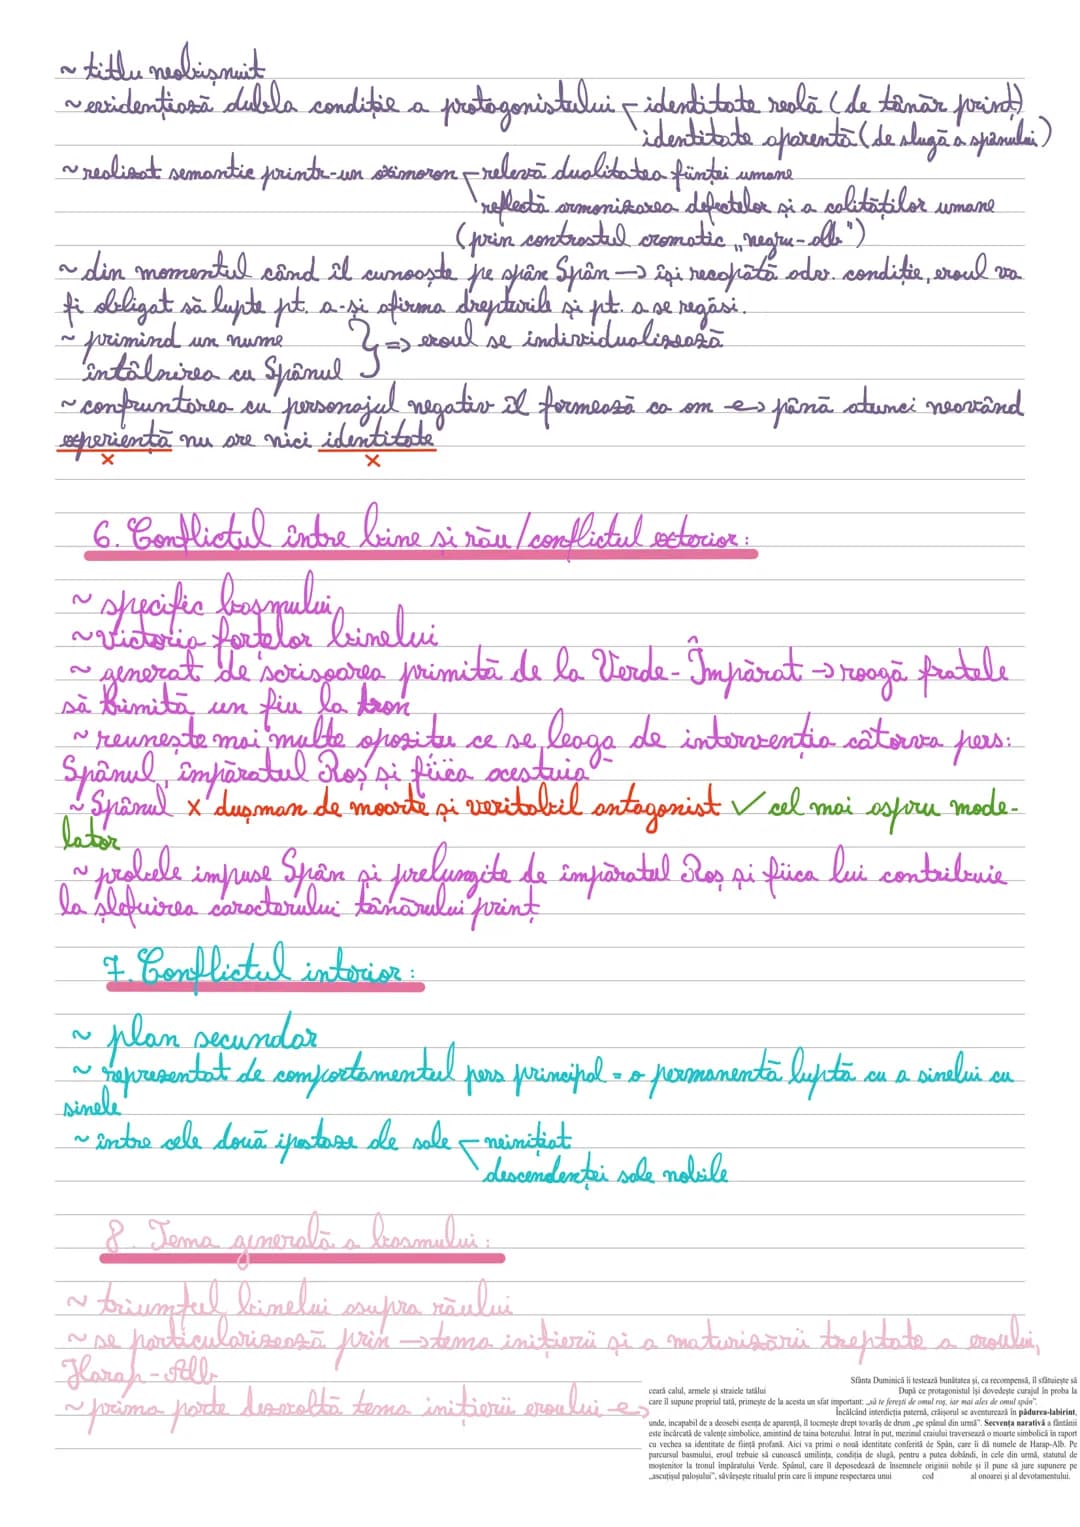 ~ titlu neobișnuit
~ evidențiază dubla condiție a protagonistului identitate reală (de tânăr prinț)
identitate aparentă (de slugă a spânului)
~ realizat semantic printr-un oximoron relevă dualitatea ființei umane
reflectă armonizarea defectelor și a calităților umane
(prin contrastul cromatic „negru-alb")
~ din momentul când îl cunoaște pe spân Spân → își recapătă adev. condiție, eroul va
fi obligat să lupte pt. a-și afirma drepturile și pt. a se regăsi.
~ primind un nume } => eroul se individualizează
întâlnirea cu Spânul
~ confruntarea cu personajul negativ îl formează ca om până atunci neavând
experiență nu are nici identitate
x x
6. Conflictul între bine si rău/conflictul exterior:
~ specific basmului
~ victoria forțelor binelui
~ generat de scrisoarea primită de la Verde-Împărat → roagă fratele
să trimită un fiu la tron
~ reunește mai multe opoziții ce se leagă de intervenția câtorva pers:
Spânul, împăratul Roș și fiica acestuia
~ Spânul x dușman de moarte și veritabil antagonist ✓ cel mai aspru mode-
lator
~ probele impuse Spân și prelungite de împăratul Roș și fiica lui contribuie
la șlefuirea caracterului tânărului prinț
7. Conflictul interior:
~ plan secundar
~ reprezentat de comportamentul pers principal = o permanentă luptă cu a sinelui cu
sinele
~ între cele două ipostaze ale sale neinițiat
descendenței sale nobile
8. Tema generală a basmului:
~ triumful binelui asupra răului
~ se particularizează prin → tema inițierii și a maturizării treptate a eroului,
Harap-Alb
~ prima parte dezvoltă tema inițierii eroului
Sfânta Duminică îi testează bunătatea și, ca recompensă, îl sfătuiește să
ceară calul, armele și straiele tatălui După ce protagonistul își dovedește curajul în proba la
care îl supune propriul tată, primește de la acesta un sfat important: „să te ferești de omul roș, iar mai ales de omul spân".
Încălcând interdicția paternă, crăișorul se aventurează în pădurea-labirint,
unde, incapabil de a deosebi esența de aparență, îl tocmește drept tovarăș de drum „pe spânul din urmă". Secvența narativă a fântânii
este încărcată de valențe simbolice, amintind de taina botezului. Intrat în puț, mezinul craiului traversează o moarte simbolică în raport
cu vechea sa identitate de ființă profană. Aici va primi o nouă identitate conferită de Spân, care îi dă numele de Harap-Alb. Pe
parcursul basmului, eroul trebuie să cunoască umilința, condiția de slugă, pentru a putea dobândi, în cele din urmă, statutul de
moștenitor la tronul împăratului Verde. Spânul, care îl deposedează de însemnele originii nobile și îl pune să jure supunere pe
„ascuțișul paloșului", săvârșește ritualul prin care îi impune respectarea unui cod al onoarei și al devotamentului.